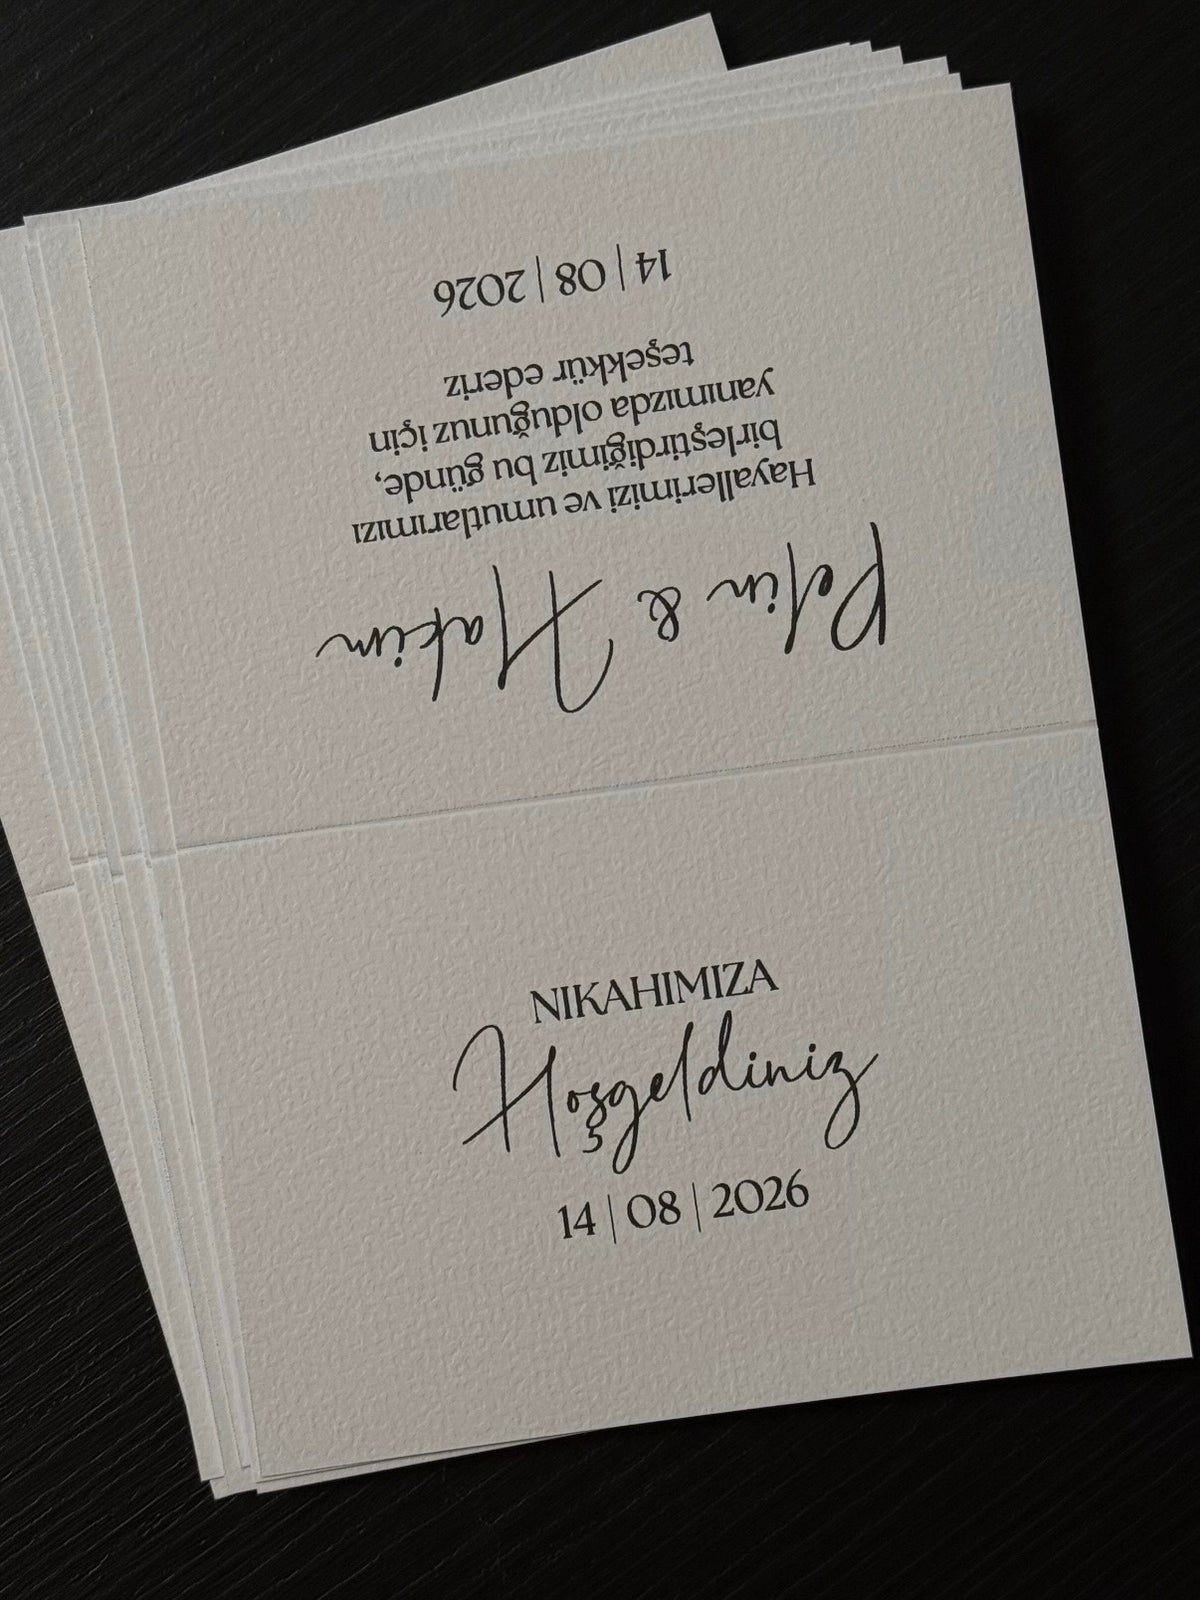 NIKAHIMIZA
Hoşgeldiniz
14 | 08 | 2026
Pelin & Hakim
Hayallerimizi ve umutlarımızı
birleştirdiğimiz bu günde,
yanımızda olduğunuz için
teşekkür ederiz
14 | 08 | 2026